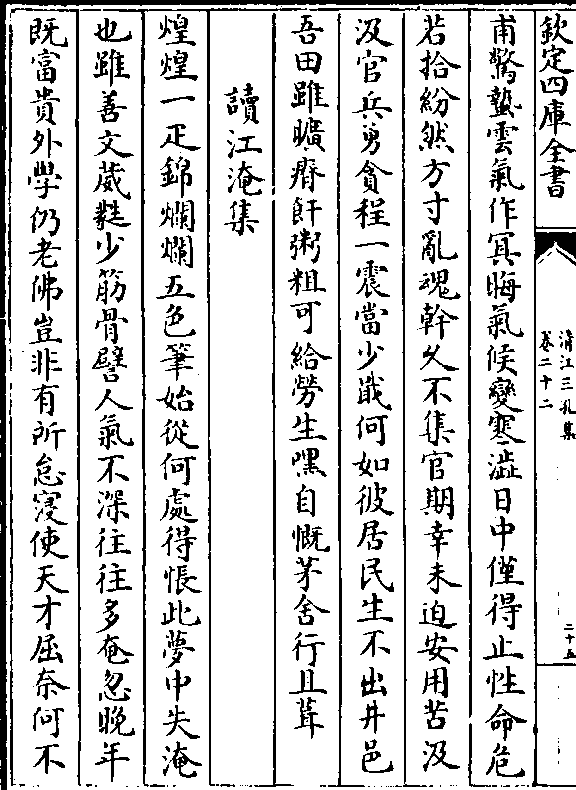 欽定四庫全書
清江三孔集
卷二十二
二十五
甫驚蟄雲氣作冥晦氣候變寒澁日中僅得止性命危
若拾紛然方寸亂魂幹久不集官期幸未迫安用苦汲
汲官兵勇貪程一震當少戢何如彼居民生不出井邑
吾田雖曠瘠飦粥粗可給勞生嘿自慨茅舍行且葺
讀江淹集
煌煌一疋錦爛爛五色筆始從何處得悵此夢中失淹
也雖善文葳蕤少筋骨譬人氣不深往往多奄忽晚年
既富貴外學仍老佛豈非有所怠寖使天才屈奈何不